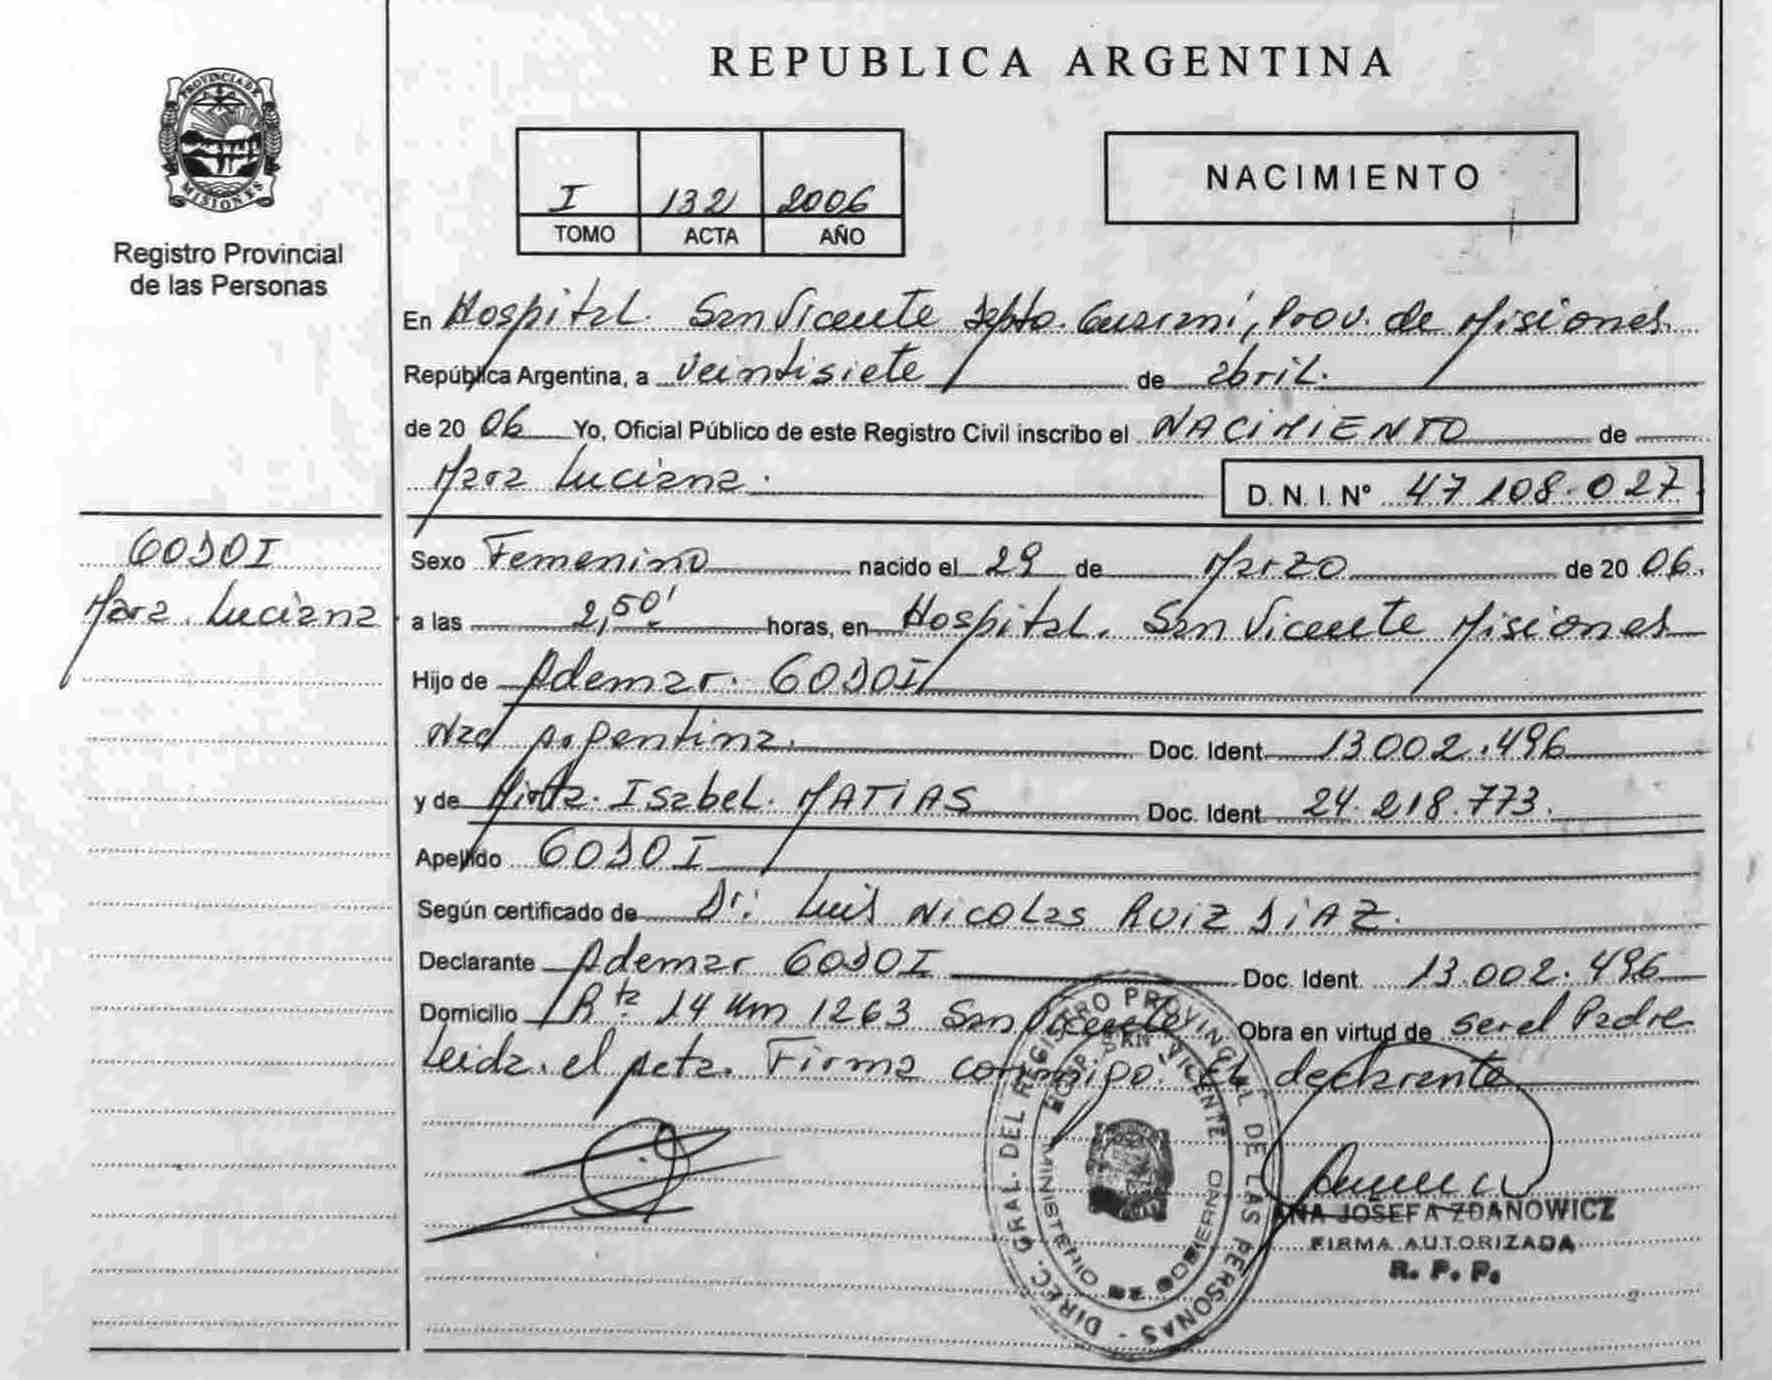 REPUBLICA ARGENTINA
PROVINCIA DE MISIONES
Registro Provincial
de las Personas
I 132 2006
TOMO ACTA AÑO
NACIMIENTO
En Hospital. San Vicente Depto. Guaraní, Prov. de Misiones
República Argentina, a veintisiete de abril.
de 2006 Yo, Oficial Público de este Registro Civil inscribo el NACIMIENTO de
Mara Luciana. D. N. I. Nº 47 108.027
GODOI
Mara. Luciana
Sexo Femenino nacido el 29 de Marzo de 2006.
a las 2,50' horas, en Hospital. San Vicente Misiones
Hijo de Ademar. GODOI
Nzd Argentina. Doc. Ident. 13.002.496
y de Isabel. MATIAS Doc. Ident. 24.218.773.
Apellido GODOI
Según certificado de Dr. Luis Nicolas Ruiz DIAZ.
Declarante Ademar GODOI Doc. Ident. 13.002.496
Domicilio Rta 14 Km 1263 San Vicente Obra en virtud de ser el Padre
Leida. el Acta. Firma conmigo. El declarante
DIREC. GRAL. DEL REGISTRO PROVINCIAL DE LAS PERSONAS
HOSP. SAN VICENTE
MINISTERIO DE GOBIERNO
ANA JOSEFA ZDANOWICZ
FIRMA AUTORIZADA
R. P. P.